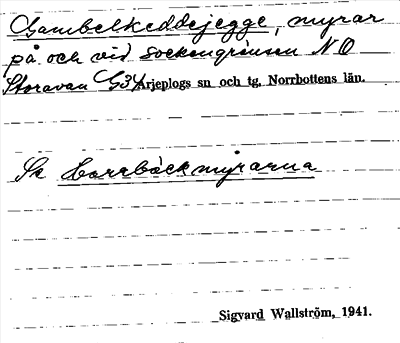 Gambelkeddejegge, myrar
på och vid sockengränsen NO
Storavan G34 Arjeplogs sn och tg, Norrbottens län.
Se Barabäckmyrarna
Sigvard Wallström, 1941.